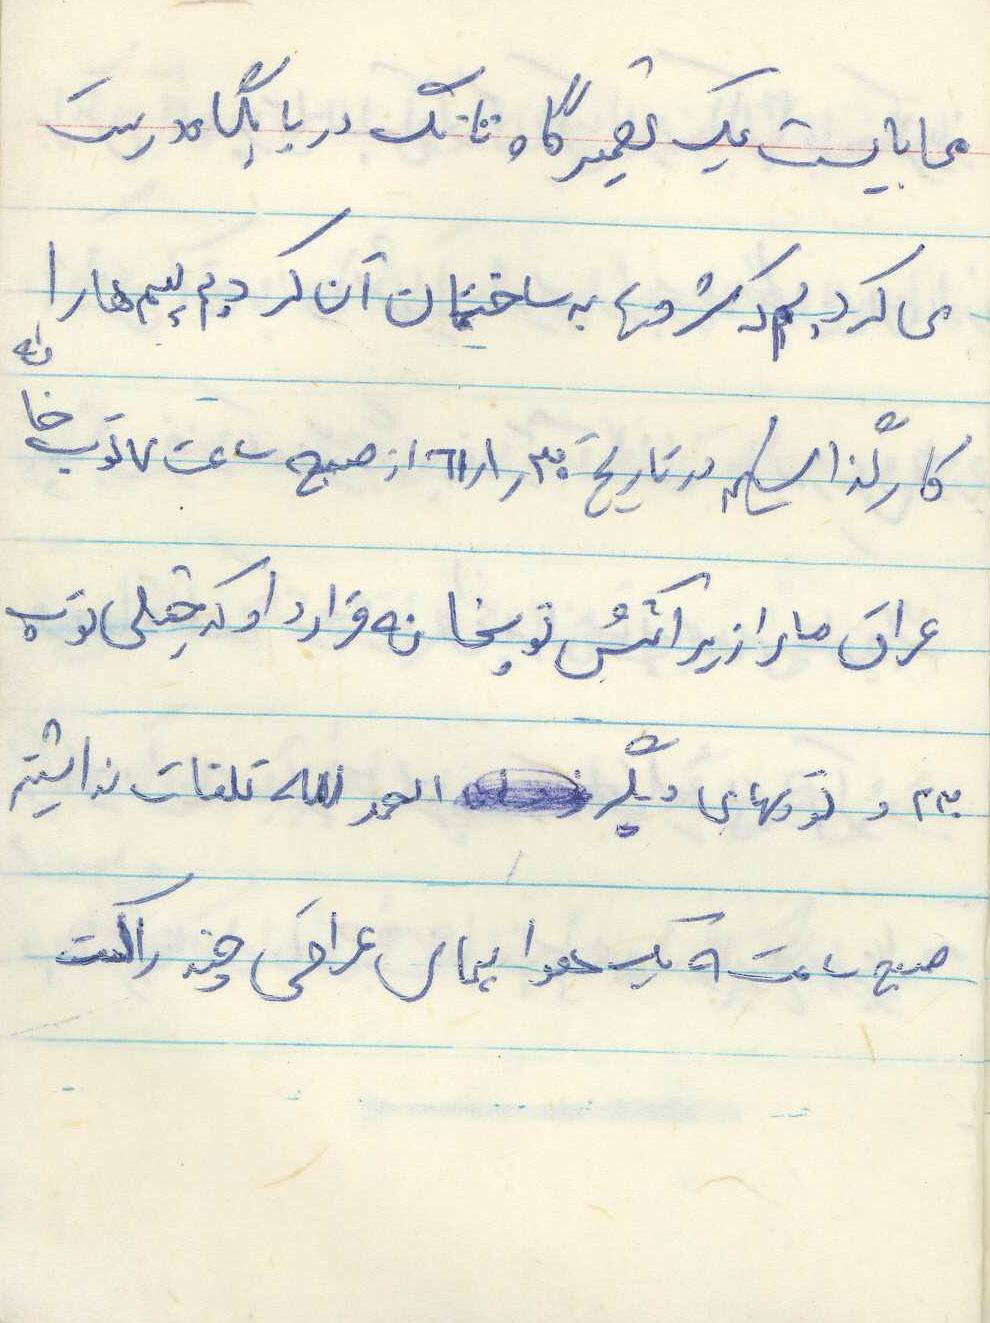 می بایست یک تعمیرگاه تانک در پایگاه درست
می کردیم که شروع به ساختمان آن کردیم پیم ها را
کار گذاشتیم در تاریخ ۳۰ر۱ر۶۱ از صبح ساعت ۷ توپ خا
نه
عراق ما را زیر آتش توپخانه قرار داد که خیلی توپ
۲۳ و توپهای دیگر الحمد لله تلفات نداشتیم
صبح ساعت ۹ یک هواپیمای عراقی چند راکت